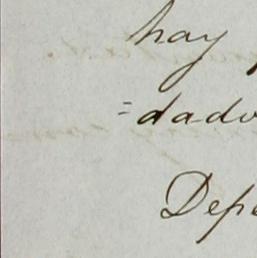 hay
=dado
Depe